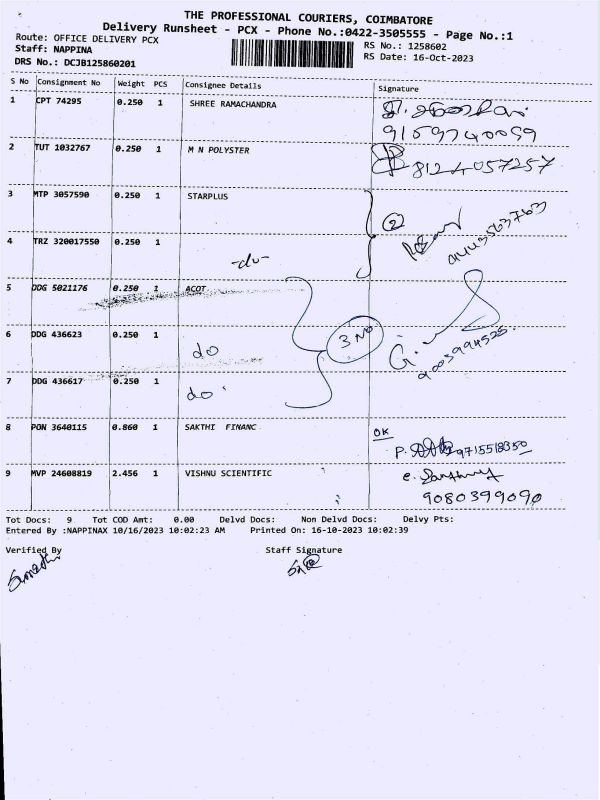 THE PROFESSIONAL COURIERS, COIMBATORE
Delivery Runsheet - PCX - Phone No.:0422-3505555 - Page No.:1
Route: OFFICE DELIVERY PCX
RS No.: 1258602
Staff: NAPPINA
RS Date: 16-Oct-2023
DRS No.: DCJB125860201
S No Consignment No Weight PCS Consignee Details Signature
1 CPT 74295 0.250 1 SHREE RAMACHANDRA
9159740059
2 TUT 1032767 0.250 1 M N POLYSTER
8124057257
3 MTP 3057590 0.250 1 STARPLUS
2
4 TRZ 320017550 0.250 1
-do-
5 DDG 5021176 0.250 1 ACOT
3 NO
6 DDG 436623 0.250 1
do
G.
7 DDG 436617 0.250 1
do
8 PON 3640115 0.860 1 SAKTHI FINANC
OK
P. 9715518350
9 MVP 24608819 2.456 1 VISHNU SCIENTIFIC
9080399090
Tot Docs: 9 Tot COD Amt: 0.00 Delvd Docs: Non Delvd Docs: Delvy Pts:
Entered By :NAPPINAX 10/16/2023 10:02:23 AM Printed On: 16-10-2023 10:02:39
Verified By Staff Signature